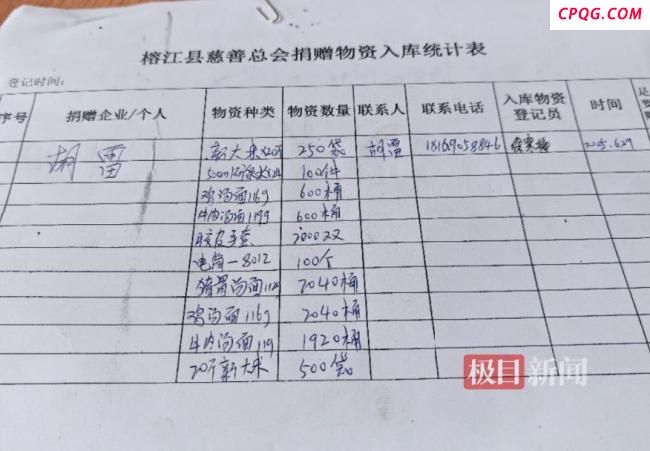 CPQG.COM
榕江县慈善总会捐赠物资入库统计表
登记时间:
序号 捐赠企业/个人 物资种类 物资数量 联系人 联系电话 入库物资登记员 时间
胡雷 新大米 250袋 胡雷 18169058846 2025.6.29
100件
鸡汤面116g 600桶
牛肉汤面119g 600桶
胶皮手套 2000双
电筒-8012 100个
猪骨汤面 2040桶
鸡汤面116g 2040桶
牛肉汤面119 1920桶
20斤新大米 500袋
极目新闻